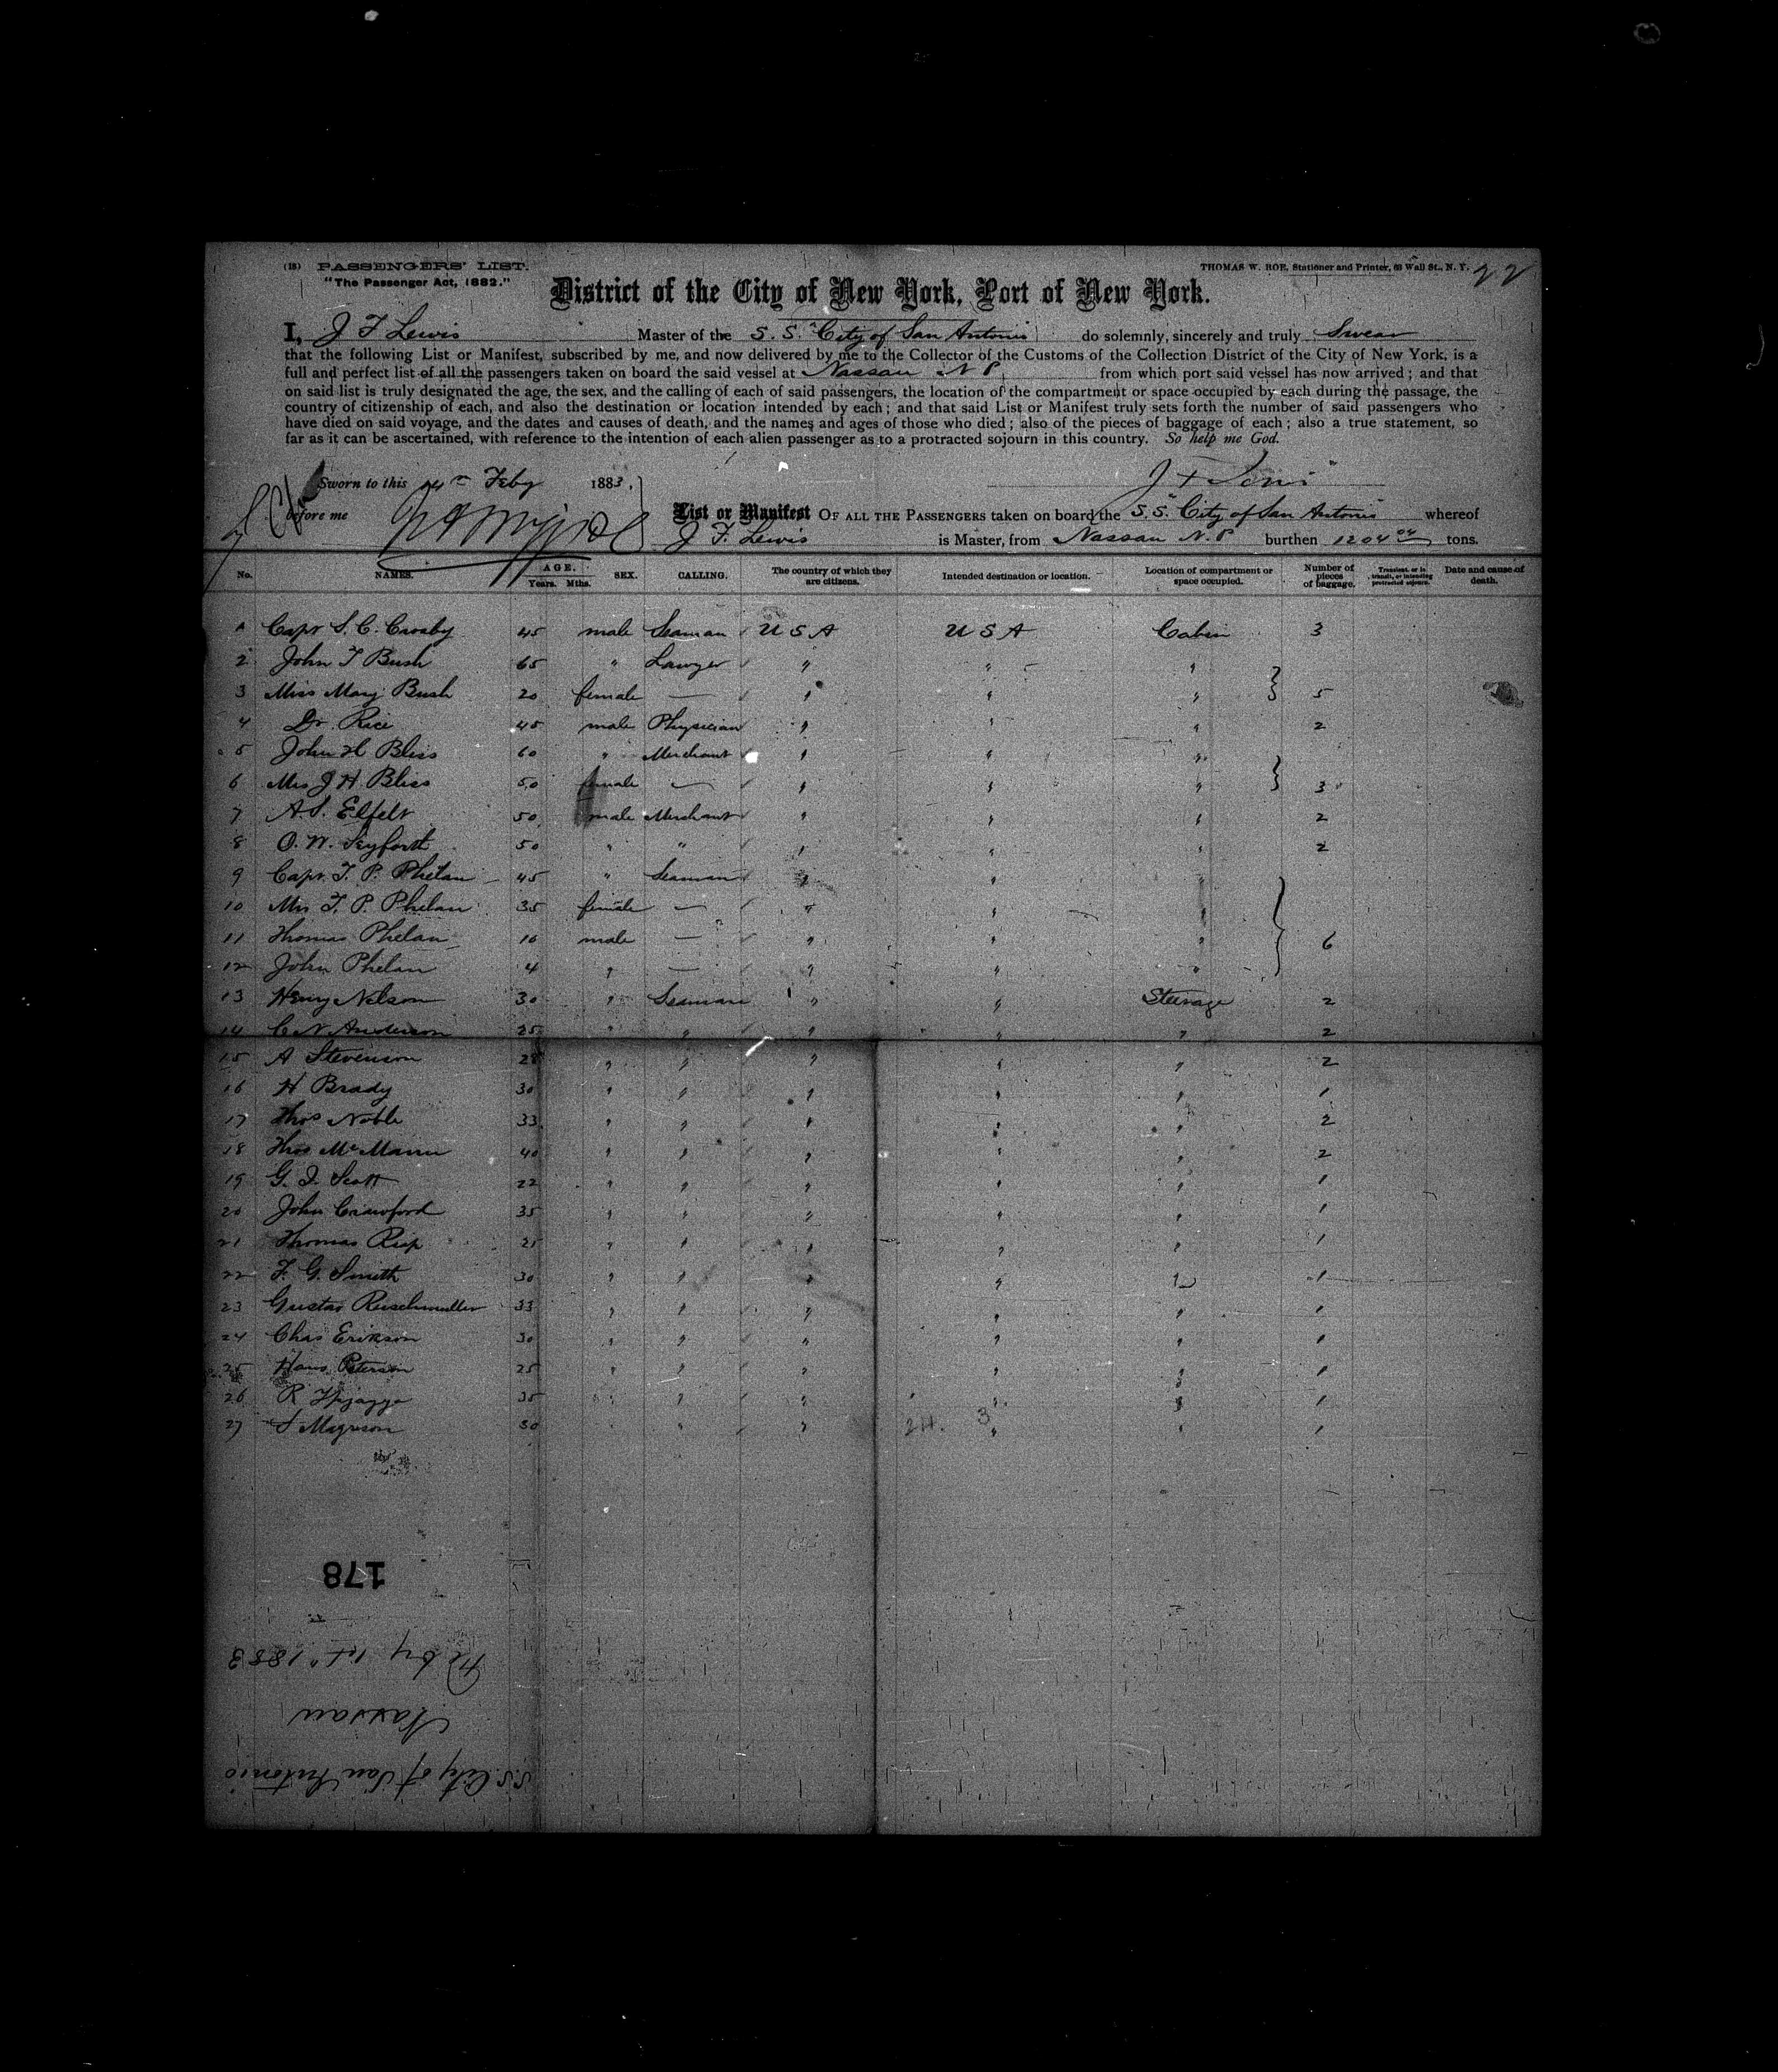 (18) PASSENGERS' LIST.
"The Passenger Act, 1882."
THOMAS W. ROE, Stationer and Printer, 63 Wall St., N. Y.
22
District of the City of New York, Port of New York.
I, J F Lewis Master of the S. S. "City of San Antonio do solemnly, sincerely and truly Swear
that the following List or Manifest, subscribed by me, and now delivered by me to the Collector of the Customs of the Collection District of the City of New York, is a
full and perfect list of all the passengers taken on board the said vessel at Nassau N P from which port said vessel has now arrived; and that
on said list is truly designated the age, the sex, and the calling of each of said passengers, the location of the compartment or space occupied by each during the passage, the
country of citizenship of each, and also the destination or location intended by each; and that said List or Manifest truly sets forth the number of said passengers who
have died on said voyage, and the dates and causes of death, and the names and ages of those who died; also of the pieces of baggage of each; also a true statement, so
far as it can be ascertained, with reference to the intention of each alien passenger as to a protracted sojourn in this country. So help me God.
Sworn to this Feby 1883,
J F Lewis
before me
List or Manifest OF ALL THE PASSENGERS taken on board the S.S. City of San Antonio whereof
J. F. Lewis is Master, from Nassau N. P burthen 1204 04 tons.
No. NAMES. AGE. Years. Mths. SEX. CALLING. The country of which they are citizens. Intended destination or location. Location of compartment or space occupied. Number of pieces of baggage. Transient, or in transit, or intending protracted sojourn. Date and cause of death.
1 Capt S. C. Crosby 45 male Seaman U S A U S A Cabin 3
2 John T Bush 65 " Lawyer " " "
3 Miss Mary Bush 20 female — " " " 5
4 Dr. Rice 45 male Physician " " " 2
5 John H Bliss 60 " Merchant " " "
6 Mrs J H Bliss 50 female — " " " 3
7 A. S. Elfelt 50 male Merchant " " " 2
8 O. W. Seyforth 50 " " " " " 2
9 Capt. T. P. Phelan 45 " Seaman " " "
10 Mrs T. P. Phelan 35 female — " " "
11 Thomas Phelan 10 male — " " " 6
12 John Phelan 4 " — " " "
13 Henry Nelson 30 " Seaman " " Steerage 2
14 C N Anderson 25 " " " " " 2
15 A Stevenson 28 " " " " " 2
16 H Brady 30 " " " " " 1
17 Thos Noble 33 " " " " " 2
18 Thos McMann 40 " " " " " 2
19 G. I. Scott 22 " " " " " 1
20 John Crawford 35 " " " " " 1
21 Thomas 25 " " " " " 1
22 F. G. Smith 30 " " " " " 1
23 Gustav 33 " " " " " 1
24 Chas Erikson 30 " " " " " 1
25 Hans Peterson 25 " " " " " 1
26 R 35 " " " " " 1
27 Magnuson 30 " " " " " 1
24. 3
178
S.S. City of San Antonio
Nassau
Feby 14" 1883